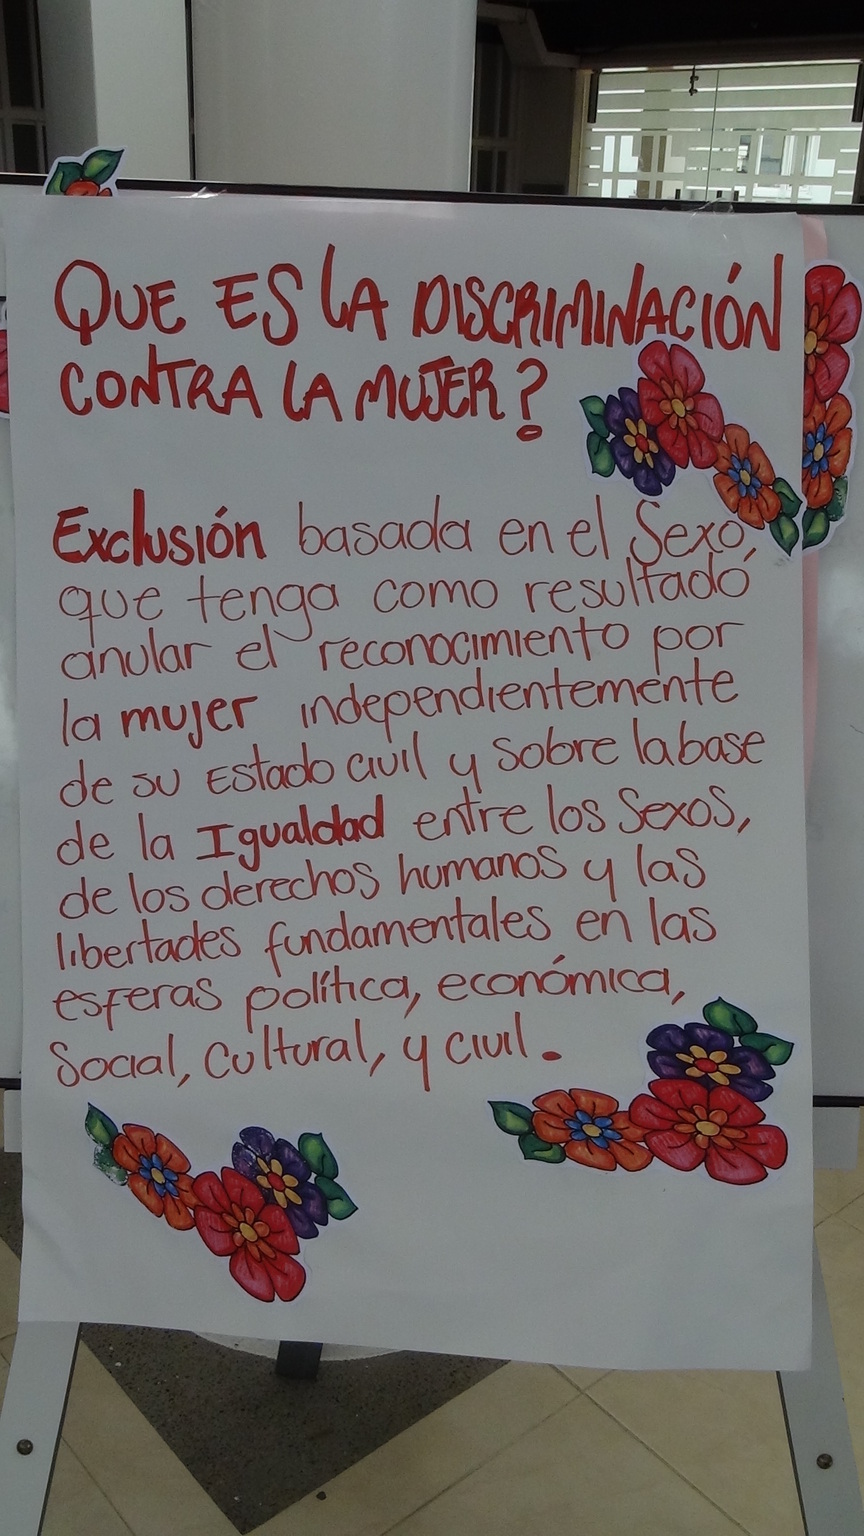 QUE ES LA DISCRIMINACIÓN
CONTRA LA MUJER?
Exclusión basada en el Sexo,
que tenga como resultado
anular el reconocimiento por
la mujer independientemente
de su Estado civil y sobre la base
de la Igualdad entre los Sexos,
de los derechos humanos y las
libertades fundamentales en las
esferas política, económica,
Social, Cultural, y civil.